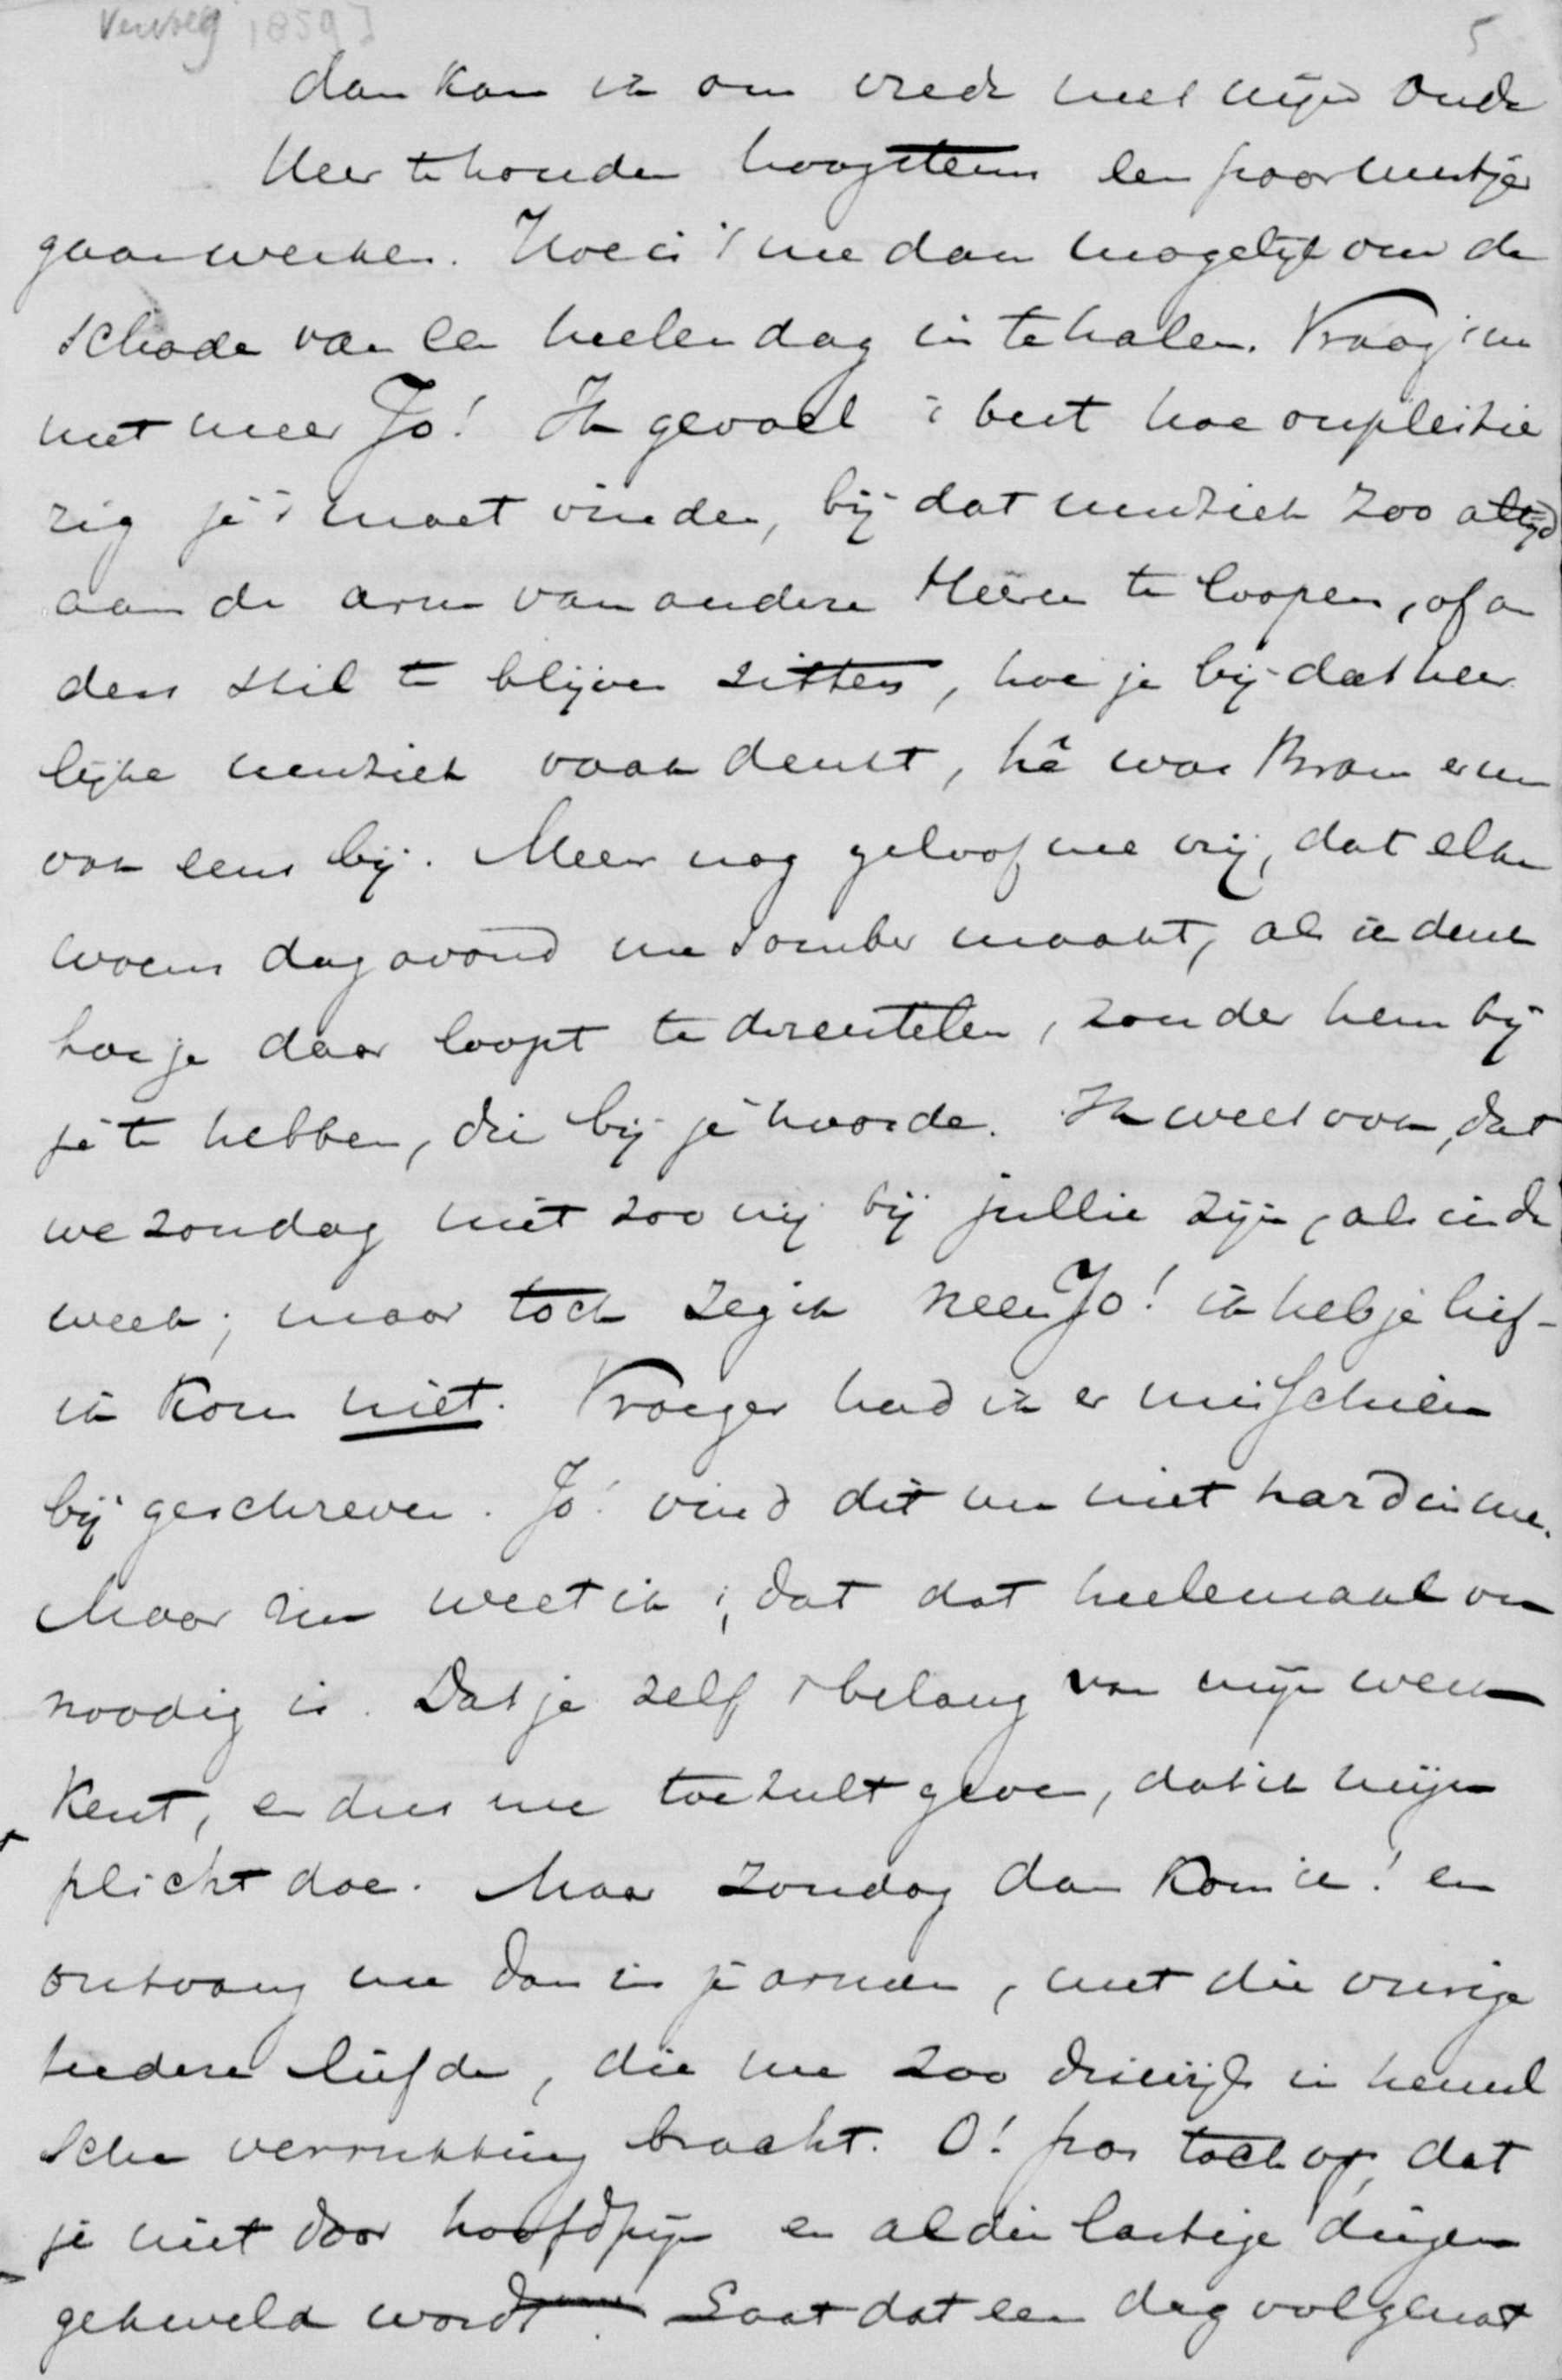 Vervolg 1859]
5
dan kan ik om vrede met mijn Oude
Heer te houden hoogstens een paar uurtjes
gaan werken. Hoe is 't me dan mogelijk om de
schade van een heelen dag in te halen. Vraag 't me
niet meer Jo! Ik gevoel 't best hoe onpleizie
rig je 't moet vinden, bij dat muziek zoo altijd
aan de arm van andere Heeren te loopen, of an
ders stil te blijven zitten, hoe je bij dat heer
lijke muziek vaak denkt, hê was Bram er nu
ook eens bij. Meer nog geloof me vrij, dat elke
woensdagavond me somber maakt, als ik denk
hoe je daar loopt te drentelen, zonder hem bij
je te hebben, die bij je hoorde. Ik weet ook, dat
we zondag niet zoo vrij bij jullie zijn, als in de
week; maar toch zeg ik neen Jo! ik heb je lief -
ik kom niet. Vroeger had ik er misschien
bij geschreven. Jo! vind dit nu niet hard in me.
Maar nu weet ik 't, dat dat heelemaal on
noodig is. Dat je zelf 't belang van mijn werk
kent, en dus me toe zult geven, dat ik mijn
plicht doe. Maar zondag dan kom ik! en
ontvang me dan in je armen, met die innige
teedere liefde, die me zoo dikwijls in hemel
sche verrukking bracht. O! pas toch op, dat
je niet door hoofdpijn en al die lastige dingen
gekweld wordt. Laat dat een dag vol genot